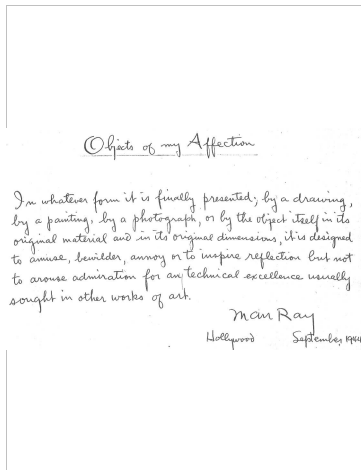 Objects of my Affection
In whatever form it is finally presented; by a drawing,
by a painting, by a photograph, or by the object itself in its
original material and in its original dimensions, it is designed
to amuse, bewilder, annoy or to inspire reflection but not
to arouse admiration for any technical excellence usually
sought in other works of art.
Man Ray
Hollywood September, 1944